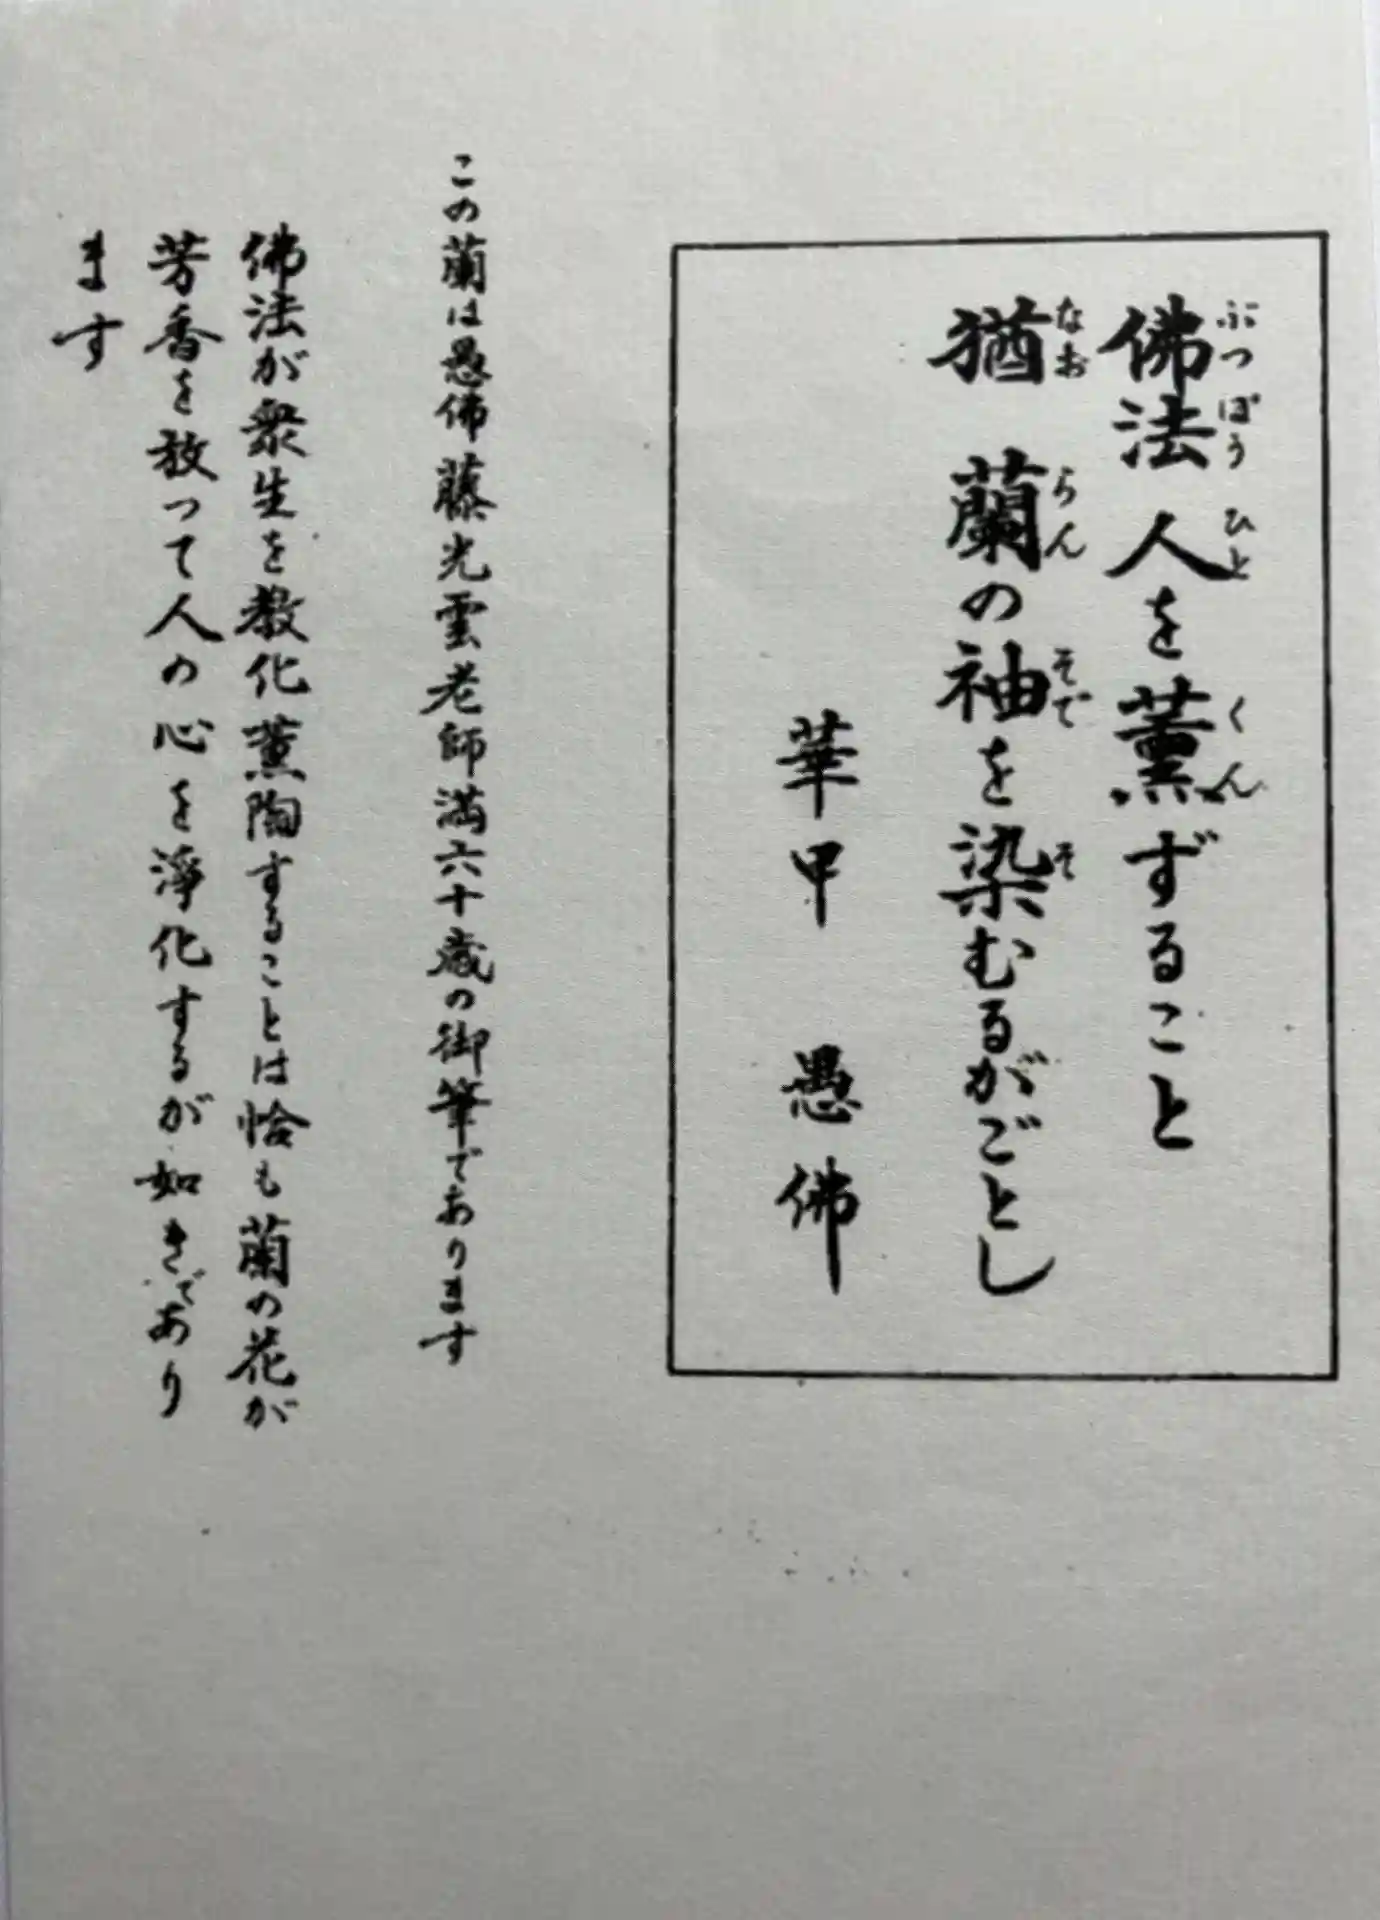 佛法人を薫ずること
ぶつぽうひとくん
猶 蘭の袖を染むるがごとし
なおらんそでそ
華甲 愚佛
この蘭は愚佛藤光雲老師満六十歳の御筆であります
佛法が衆生を教化薫陶することは恰も蘭の花が
芳香を放って人の心を淨化するが如きであり
ます